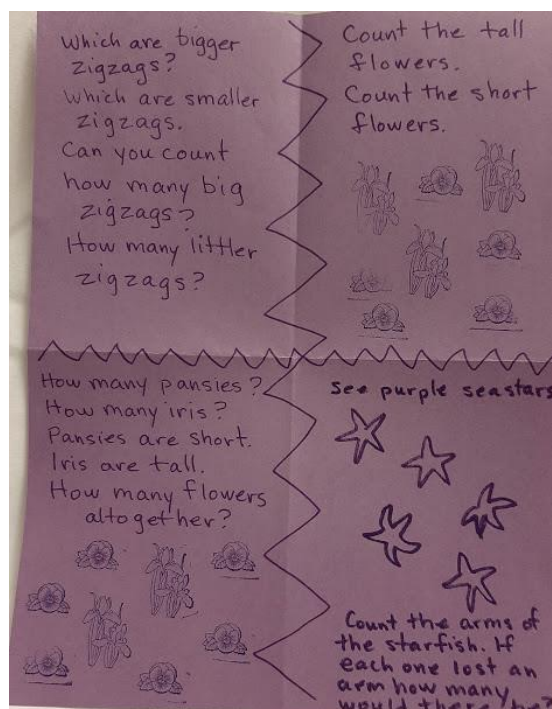 Which are bigger
zigzags?
Which are smaller
zigzags.
Can you count
how many big
zigzags?
How many littler
zigzags?
Count the tall
flowers.
Count the short
flowers.
How many pansies?
How many iris?
Pansies are short.
Iris are tall.
How many flowers
altogether?
See purple seastars
Count the arms of
the starfish. If
each one lost an
arm how many
would there be?